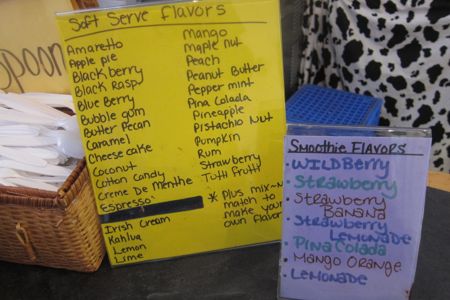 spoon
Soft Serve Flavors
Amaretto
Apple pie
Blackberry
Black Rasp
Blue Berry
Bubble gum
Butter Pecan
Caramel
Cheesecake
Coconut
Cotton Candy
Creme De menthe
Espresso
Irish Cream
Kahlua
Lemon
Lime
Mango
Maple nut
Peach
Peanut Butter
Pepper mint
Pina Colada
Pineapple
Pistachio Nut
Pumpkin
Rum
Strawberry
Tutti Frutti
* Plus mix-n
match to
make your
own flavor
Smoothie Flavors
• WILDBerry
• Strawberry
• Strawberry
Banana
• Strawberry
Lemonade
• Pina Colada
• Mango Orange
• Lemonade